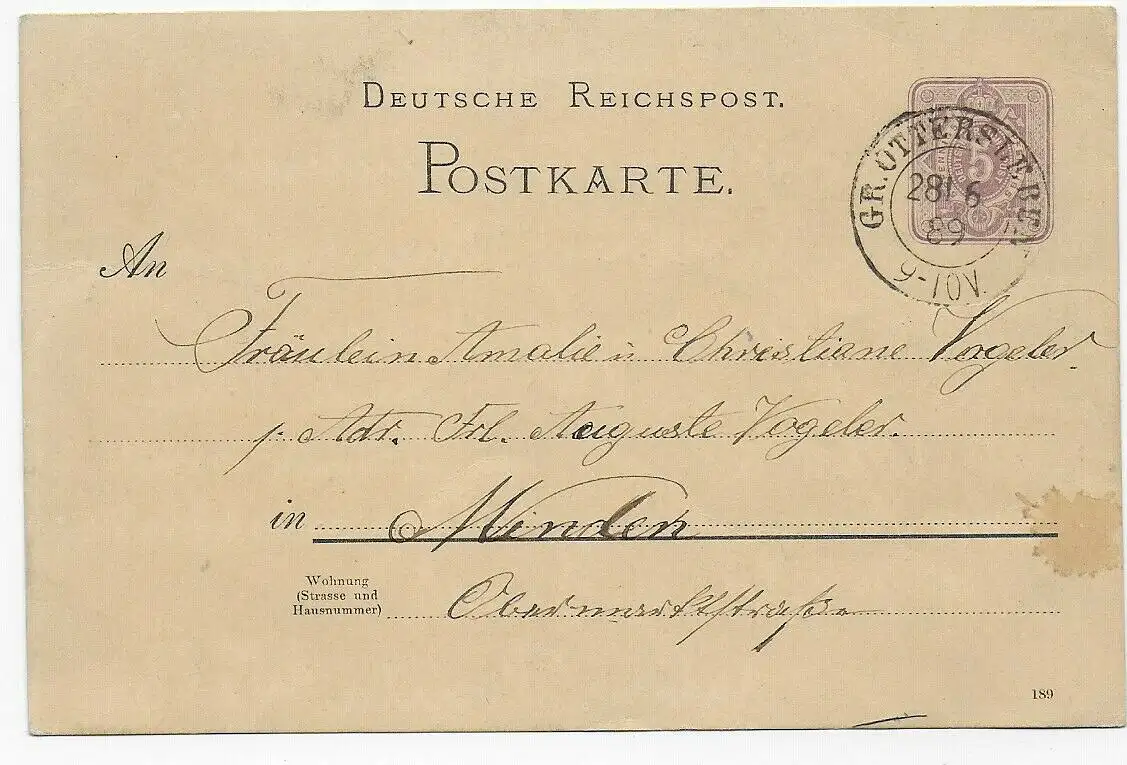 DEUTSCHE REICHSPOST.
POSTKARTE.
GR. OTTERSLEBEN
28/6
89
9-10V.
5
An
Fräulein Amalie u Christiane Vogeler
p. Adr. Frl. Auguste Vogeler.
in Minden
Wohnung
(Strasse und
Hausnummer)
Obermarktstraße
189